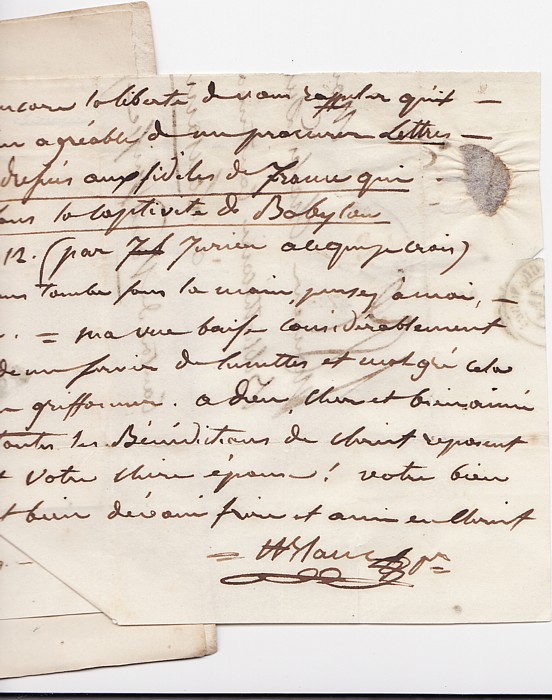 encore la liberté de vous rappeler qu'il —
agréable de me procurer Lettres —
aux fidèles de France qui
dans la captivité de Babylon
12. (par Jurieu à ce que je crois)
tombe sous la main, pensez à moi, —
= ma vue baisse considérablement
de me servir de lunettes et malgré cela
griffonner. a dieu, cher et bien aimé
toutes les Bénédictions de Christ reposent
votre chère épouse! votre bien
bien dévoué frère et ami en Christ